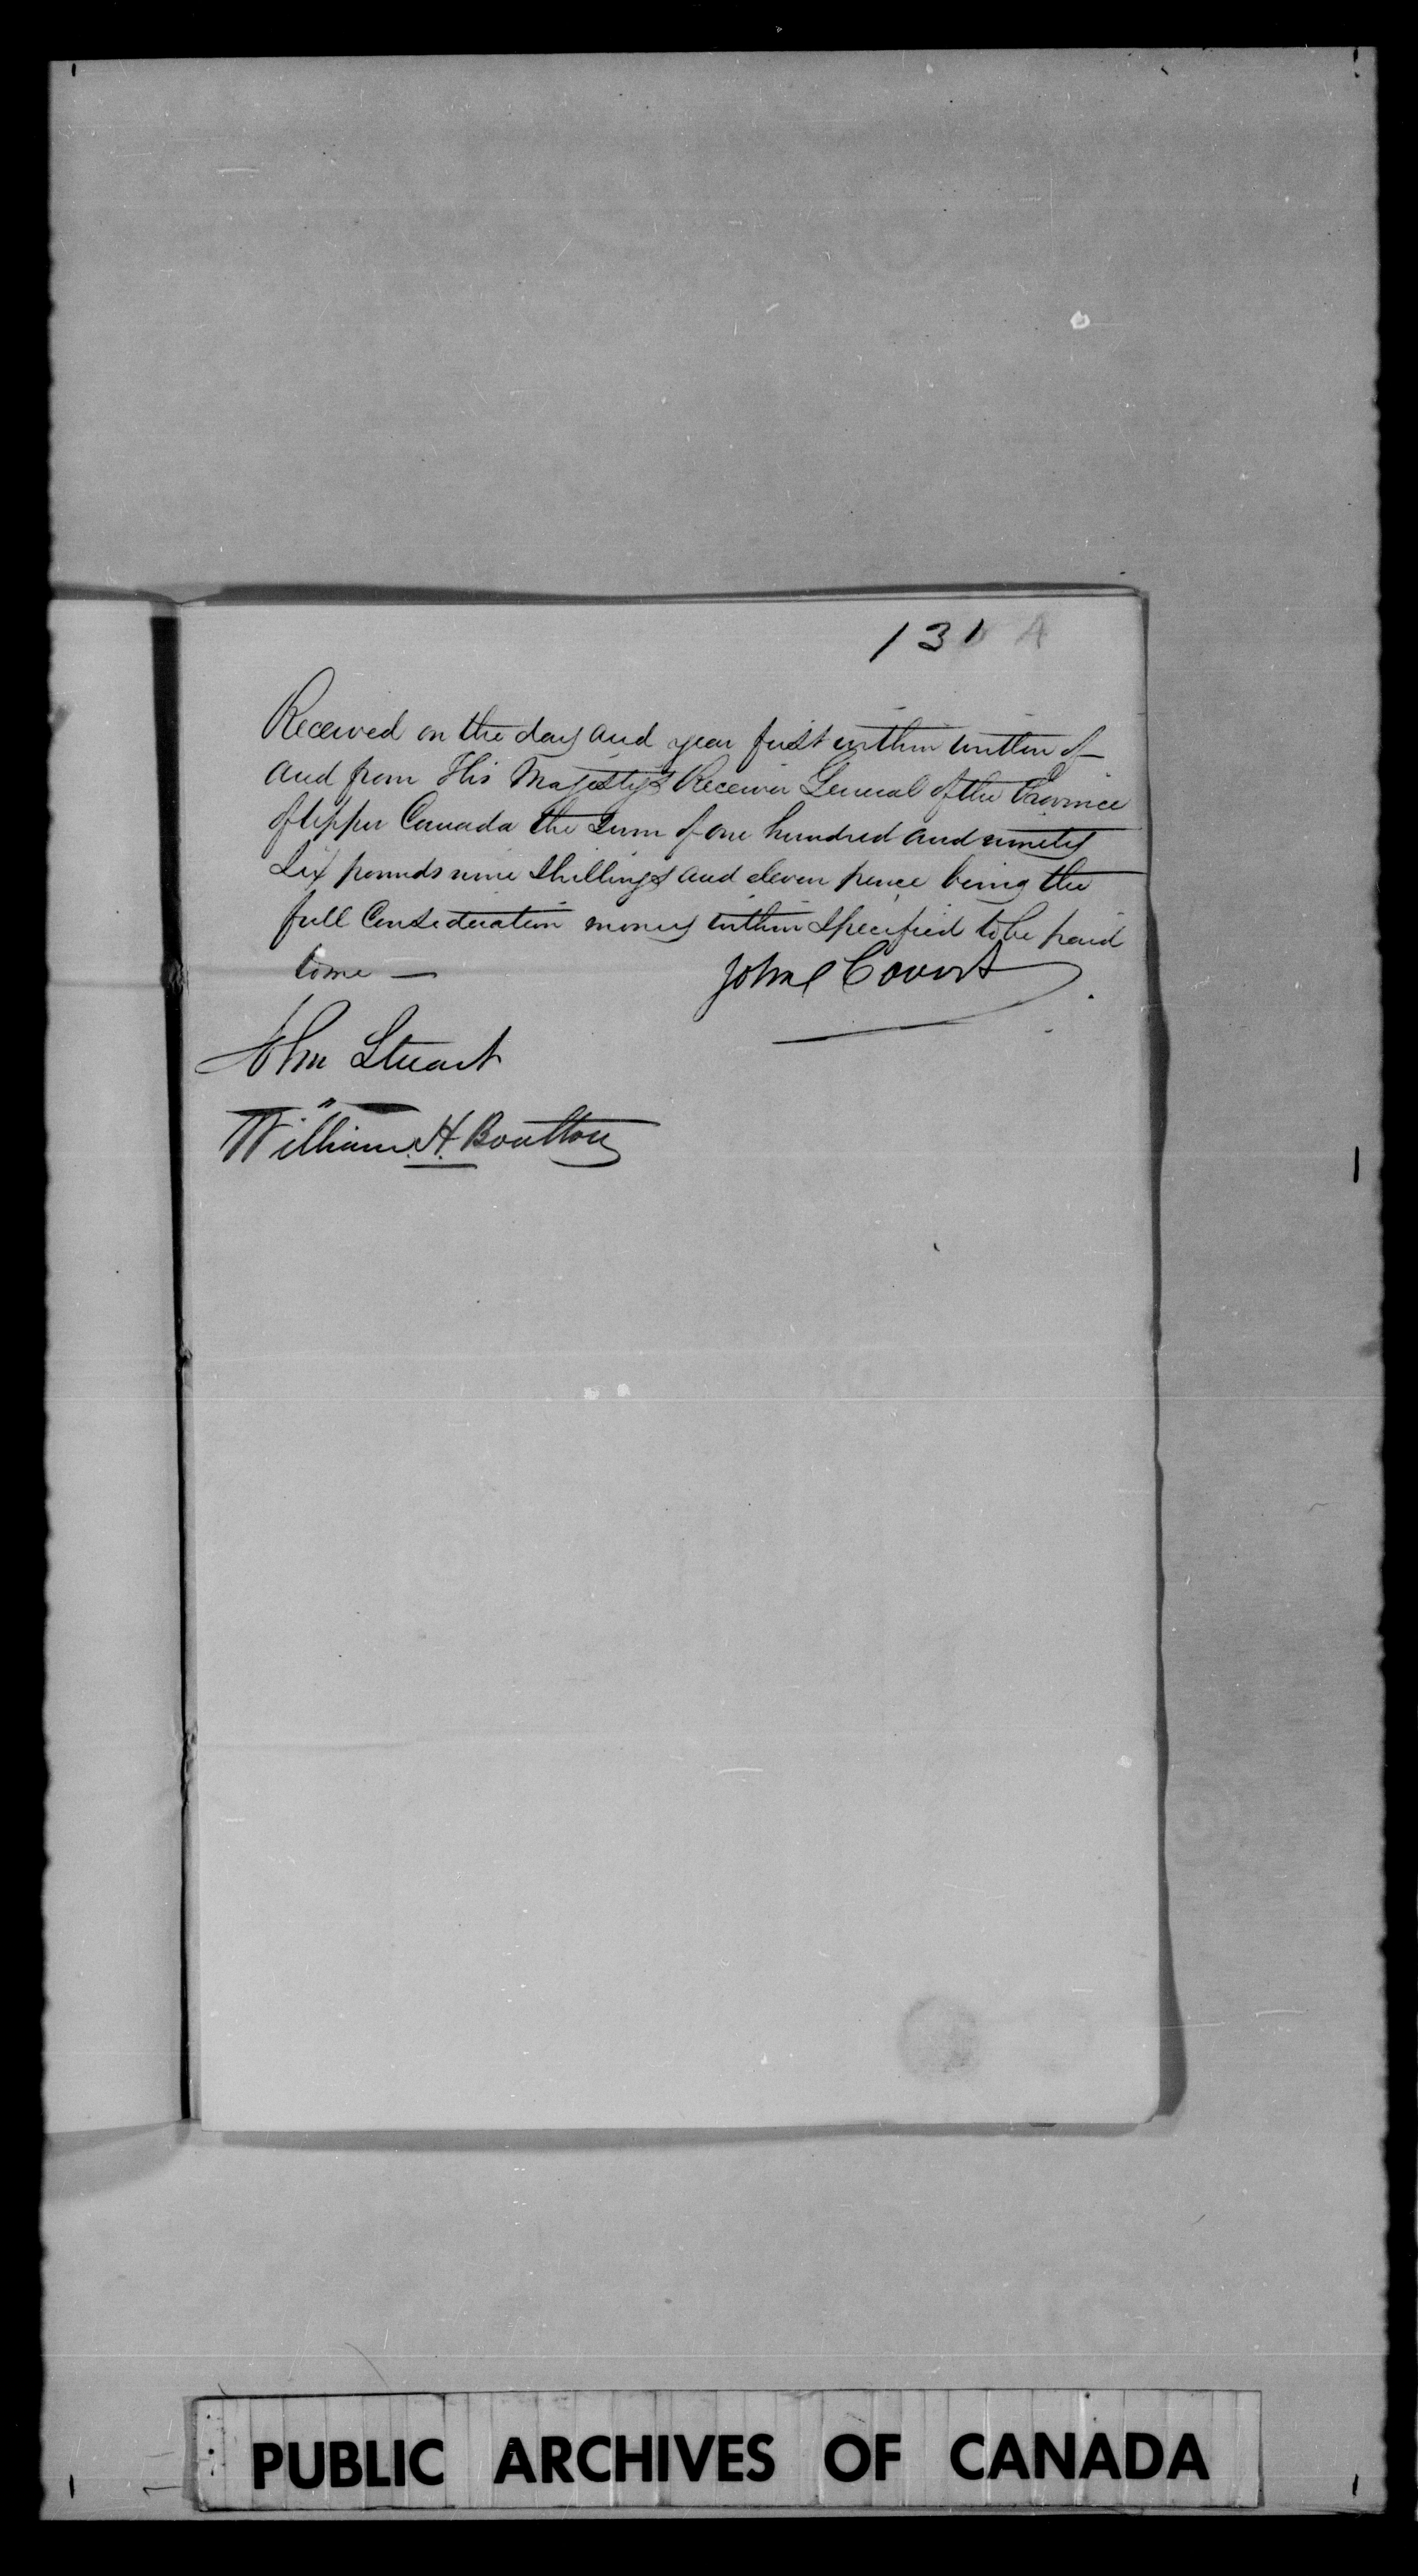 131 A
Received on the day and year first within written of
and from His Majesty's Receiver General of the Province
of Upper Canada the Sum of one hundred and ninety
Six pounds nine Shillings and eleven pence being the
full Consideration money within Specified to be paid
to me —
John Covert
John Stuart
William. H. Boulton
PUBLIC ARCHIVES OF CANADA